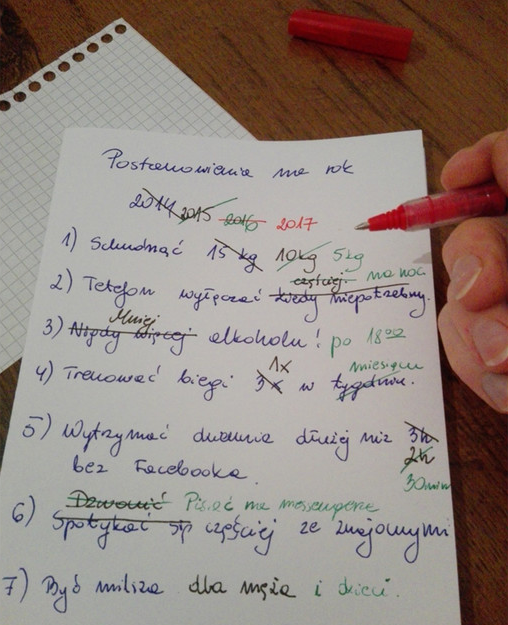 Postanowienia na rok
2014 2015 2016 2017
1) Schudnąć 15 kg 10kg 5kg
częściej. na noc
2) Telefon wyłączać kiedy niepotrzebny.
Mniej
3) Nigdy więcej alkoholu! po 18⁰⁰
1x miesiącu
4) Trenować biegi 3x w tygodniu.
5) Wytrzymać dwunia dłużej niż 3h
2h
bez Facebooka.
30min
Dzwonić Pisać na messengerze
6) Spotykać się częściej ze znajomymi
7) Być milsza dla męża i dzieci.